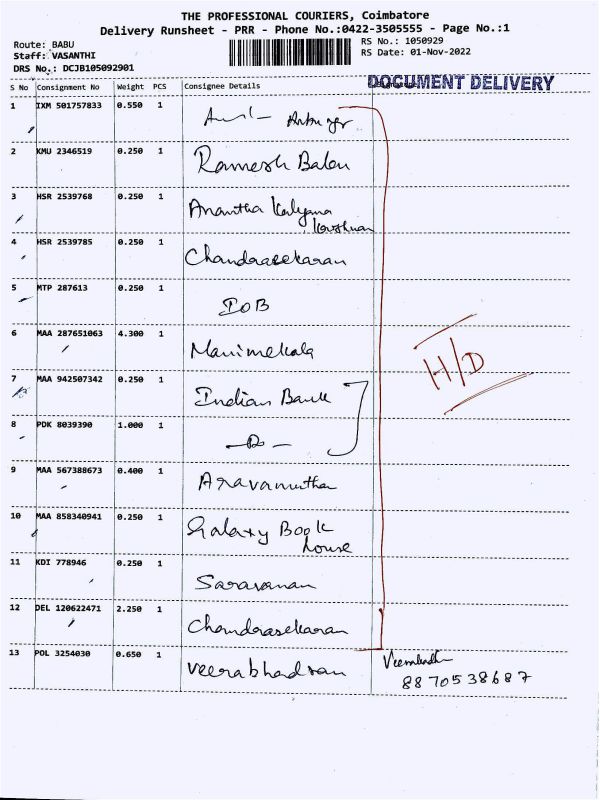 THE PROFESSIONAL COURIERS, Coimbatore
Delivery Runsheet - PRR - Phone No.:0422-3505555 - Page No.:1
Route: BABU
Staff: VASANTHI
DRS No.: DCJB105092901
RS No.: 1050929
RS Date: 01-Nov-2022
S No Consignment No Weight PCS Consignee Details
DOCUMENT DELIVERY
1 IXM 501757833 0.550 1
2 KMU 2346519 0.250 1 Ramesh Balan
3 HSR 2539768 0.250 1 Anantha Kalyana
Krishnan
4 HSR 2539785 0.250 1 Chandrasekaran
5 MTP 287613 0.250 1 IOB
6 MAA 287651063 4.300 1 Manimekala
H/D
7 MAA 942507342 0.250 1 Indian Bank
8 PDK 8039390 1.000 1 -Do-
9 MAA 567388673 0.400 1 Aravamuthan
10 MAA 858340941 0.250 1 Galaxy Book
house
11 KDI 778946 0.250 1 Saravanan
12 DEL 120622471 2.250 1 Chandrasekaran
13 POL 3254030 0.650 1 Veerabhadran
8870538687